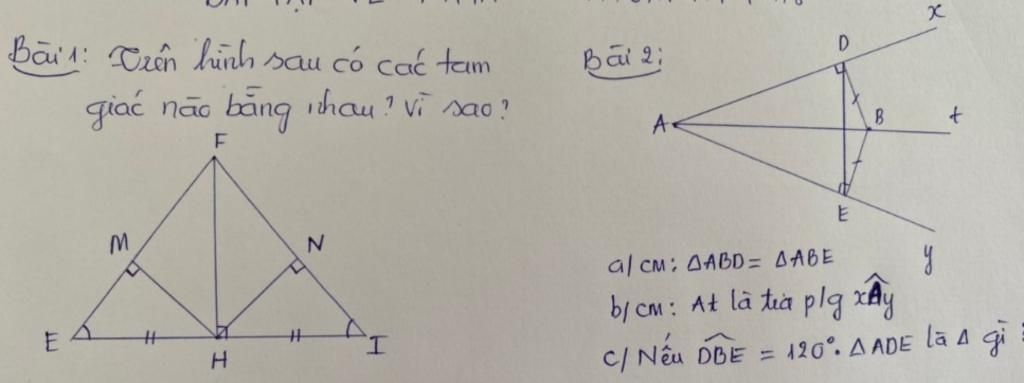 Bài 1: Trên hình sau có các tam
giác nào bằng nhau? Vì sao?
F
M
N
E
H
I
Bài 2:
x
D
A
B
t
E
y
a/ CM: ΔABD = ΔABE
b/ CM: At là tia p/g xÂy
c/ Nếu \widehat{DBE} = 120°. ΔADE là Δ gì ?